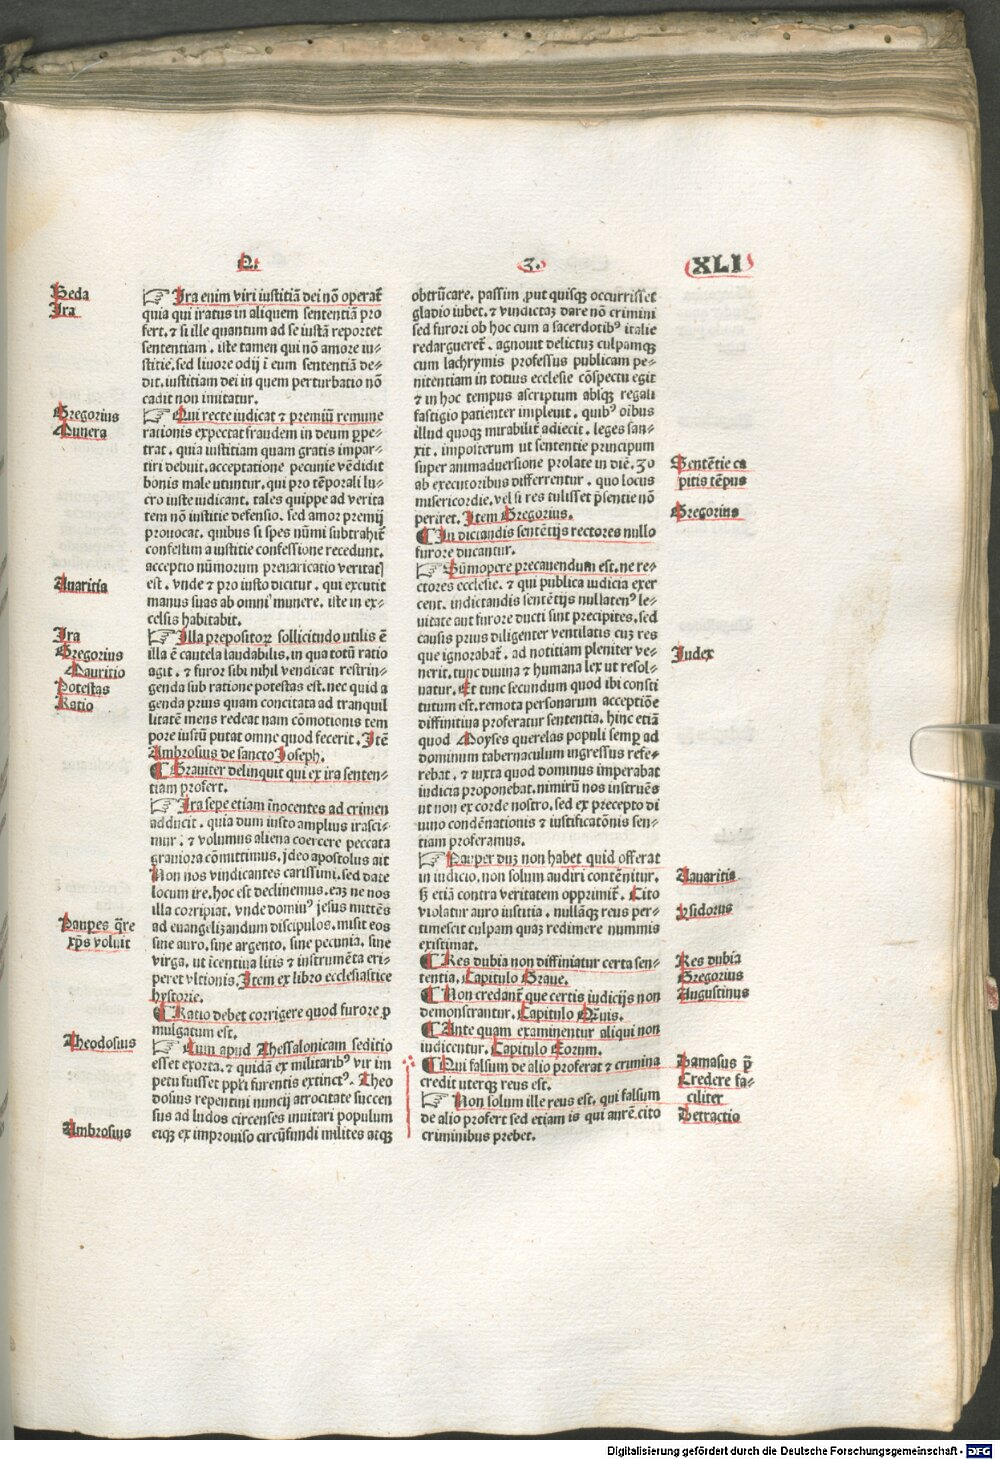 2.
3.
XLI
Beda
Ira
Gregorius
Munera
Auaritia
Ira
Gregorius
Mauritio
Potestas
Ratio
Paupes q̄re
xp̄s voluit
Theodosius
Ambrosius
☞ Ira enim viri iustitiā dei nō operat᷑
quia qui iratus in aliquem sententiā pro
fert. ⁊ si ille quantum ad se iustā reportet
sententiam. iste tamen qui nō amore iu⸗
stitie. sed liuore odij ī eum sententiā de⸗
dit. iustitiam dei in quem perturbatio nō
cadit non imitatur.
☞ Qui recte iudicat ⁊ premiū remune
rationis expectat fraudem in deum ꝑpe⸗
trat. quia iustitiam quam gratis impar⸗
tiri debuit. acceptatione pecunie vēdidit
bonis male vtuntur. qui pro tēporali lu⸗
cro iuste iudicant. tales quippe ad verita
tem nō iustitie defensio. sed amor premij
prouocat. quibus si spes nūmi subtrahit᷑
confestim a iustitie confessione recedunt.
acceptio nūmorum preuaricatio veritat
est. vnde ⁊ pro iusto dicitur. qui excutit
manus suas ab omni munere. iste in ex⸗
celsis habitabit.
☞ Illa prepositoꝝ sollicitudo vtilis ē
illa ē cautela laudabilis. in qua totū ratio
agit. ⁊ furor sibi nihil vendicat restrin⸗
genda sub ratione potestas est. nec quid a
genda prius quam concitata ad tranquil
litatē mens redeat nam cōmotionis tem
pore iustū putat omne quod fecerit. Itē
Ambrosius de sancto Joseph.
¶ Grauiter delinquit qui ex ira senten⸗
tiam profert.
☞ Ira sepe etiam īnocentes ad crimen
adducit. quia dum iusto amplius irasci⸗
mur. ⁊ volumus aliena coercere peccata
grauiora cōmittimus. jdeo apostolus ait
Non nos vindicantes carissimi. sed date
locum ire. hoc est declinemus. eaꝫ ne nos
illa corripiat. vnde dominꝰ jesus mittēs
ad euangelizandum discipulos. misit eos
sine auro. sine argento. sine pecunia. sine
virga. vt īcentiua litis ⁊ instrumēta eri⸗
peret vltionis. Item ex libro ecclesiastice
hystorie.
¶ Ratio debet corrigere quod furore ꝓ
mulgatum est.
☞ Cum apud Thessalonicam seditio
esset exorta. ⁊ quidā ex militaribꝰ vir im
petu fuisset pp̄ri furentis extinctꝰ. Theo
dosius repentini nuncij atrocitate succen
sus ad ludos circenses inuitari populum
eiqꝫ ex improuiso circūfundi milites atqꝫ
obtrūcare. passim ,put quisqꝫ occurrisset
gladio iubet. ⁊ vindictaꝫ dare nō crimini
sed furori ob hoc cum a sacerdotibꝰ italie
redargueret᷑. agnouit delictuꝫ culpamqꝫ
cum lachrymis professus publicam pe⸗
nitentiam in totius ecclesie cōspectu egit
⁊ in hoc tempus ascriptum absqꝫ regali
fastigio patienter impleuit. quibꝰ oībus
illud quoqꝫ mirabilit᷑ adiecit. leges san⸗
xit. imposterum vt sententie principum
super animaduersione prolate in diē. 30
ab executoribus differrentur. quo locus
misericordie. vel si res tulisset p̄sentie nō
periret. Item Gregorius.
¶ In dictandis sentētijs rectores nullo
furore ducantur.
☞ Sūmopere precauendum est. ne re⸗
ctores ecclesie. ⁊ qui publica iudicia exer
cent. indictandis sentētijs nullatenꝰ le⸗
uitate aut furore ducti sint precipites. sed
causis prius diligenter ventilatis cuꝫ res
que ignorabat᷑. ad notitiam pleniter ve⸗
nerit. tunc diuina ⁊ humana lex vt resol⸗
uatur. Et tunc secundum quod ibi consti
tutum est. remota personarum acceptiōe
diffinitiua proferatur sententia. hinc etiā
quod Moyses querelas populi semꝑ ad
dominum tabernaculum ingressus refe⸗
rebat. ⁊ iuxta quod dominus imperabat
iudicia proponebat. nimirū nos instruēs
vt non ex corde nostro. sed ex precepto di
uino condēnationis ⁊ iustificatōnis sen⸗
tiam proferamus.
☞ Pauper duꝫ non habet quid offerat
in iudicio. non solum audiri contēnitur.
ẜ etiā contra veritatem opprimit᷑. Cito
violatur auro iustitia. nullāqꝫ reus per⸗
timescit culpam quaꝫ redimere nummis
existimat.
¶ Res dubia non diffiniatur certa sen⸗
tentia. Capitulo Graue.
¶ Non credant᷑ que certis iudicijs non
demonstrantur. Capitulo Qūis.
¶ Ante quam examinentur aliqui non
iudicentur. Capitulo Eorum.
¶ Qui falsum de alio proferat ⁊ crimina
credit uterqꝫ reus est.
☞ Non solum ille reus est. qui falsum
de alio profert sed etiam is qui aurē. cito
criminibus prebet.
Sentētie ca
pitis tēpus
Gregorius
Iudex
Auaritia
Ysidorus
Res dubia
Gregorius
Augustinus
Damasus p̄
Credere fa⸗
ciliter
Detractio
Digitalisierung gefördert durch die Deutsche Forschungsgemeinschaft - DFG